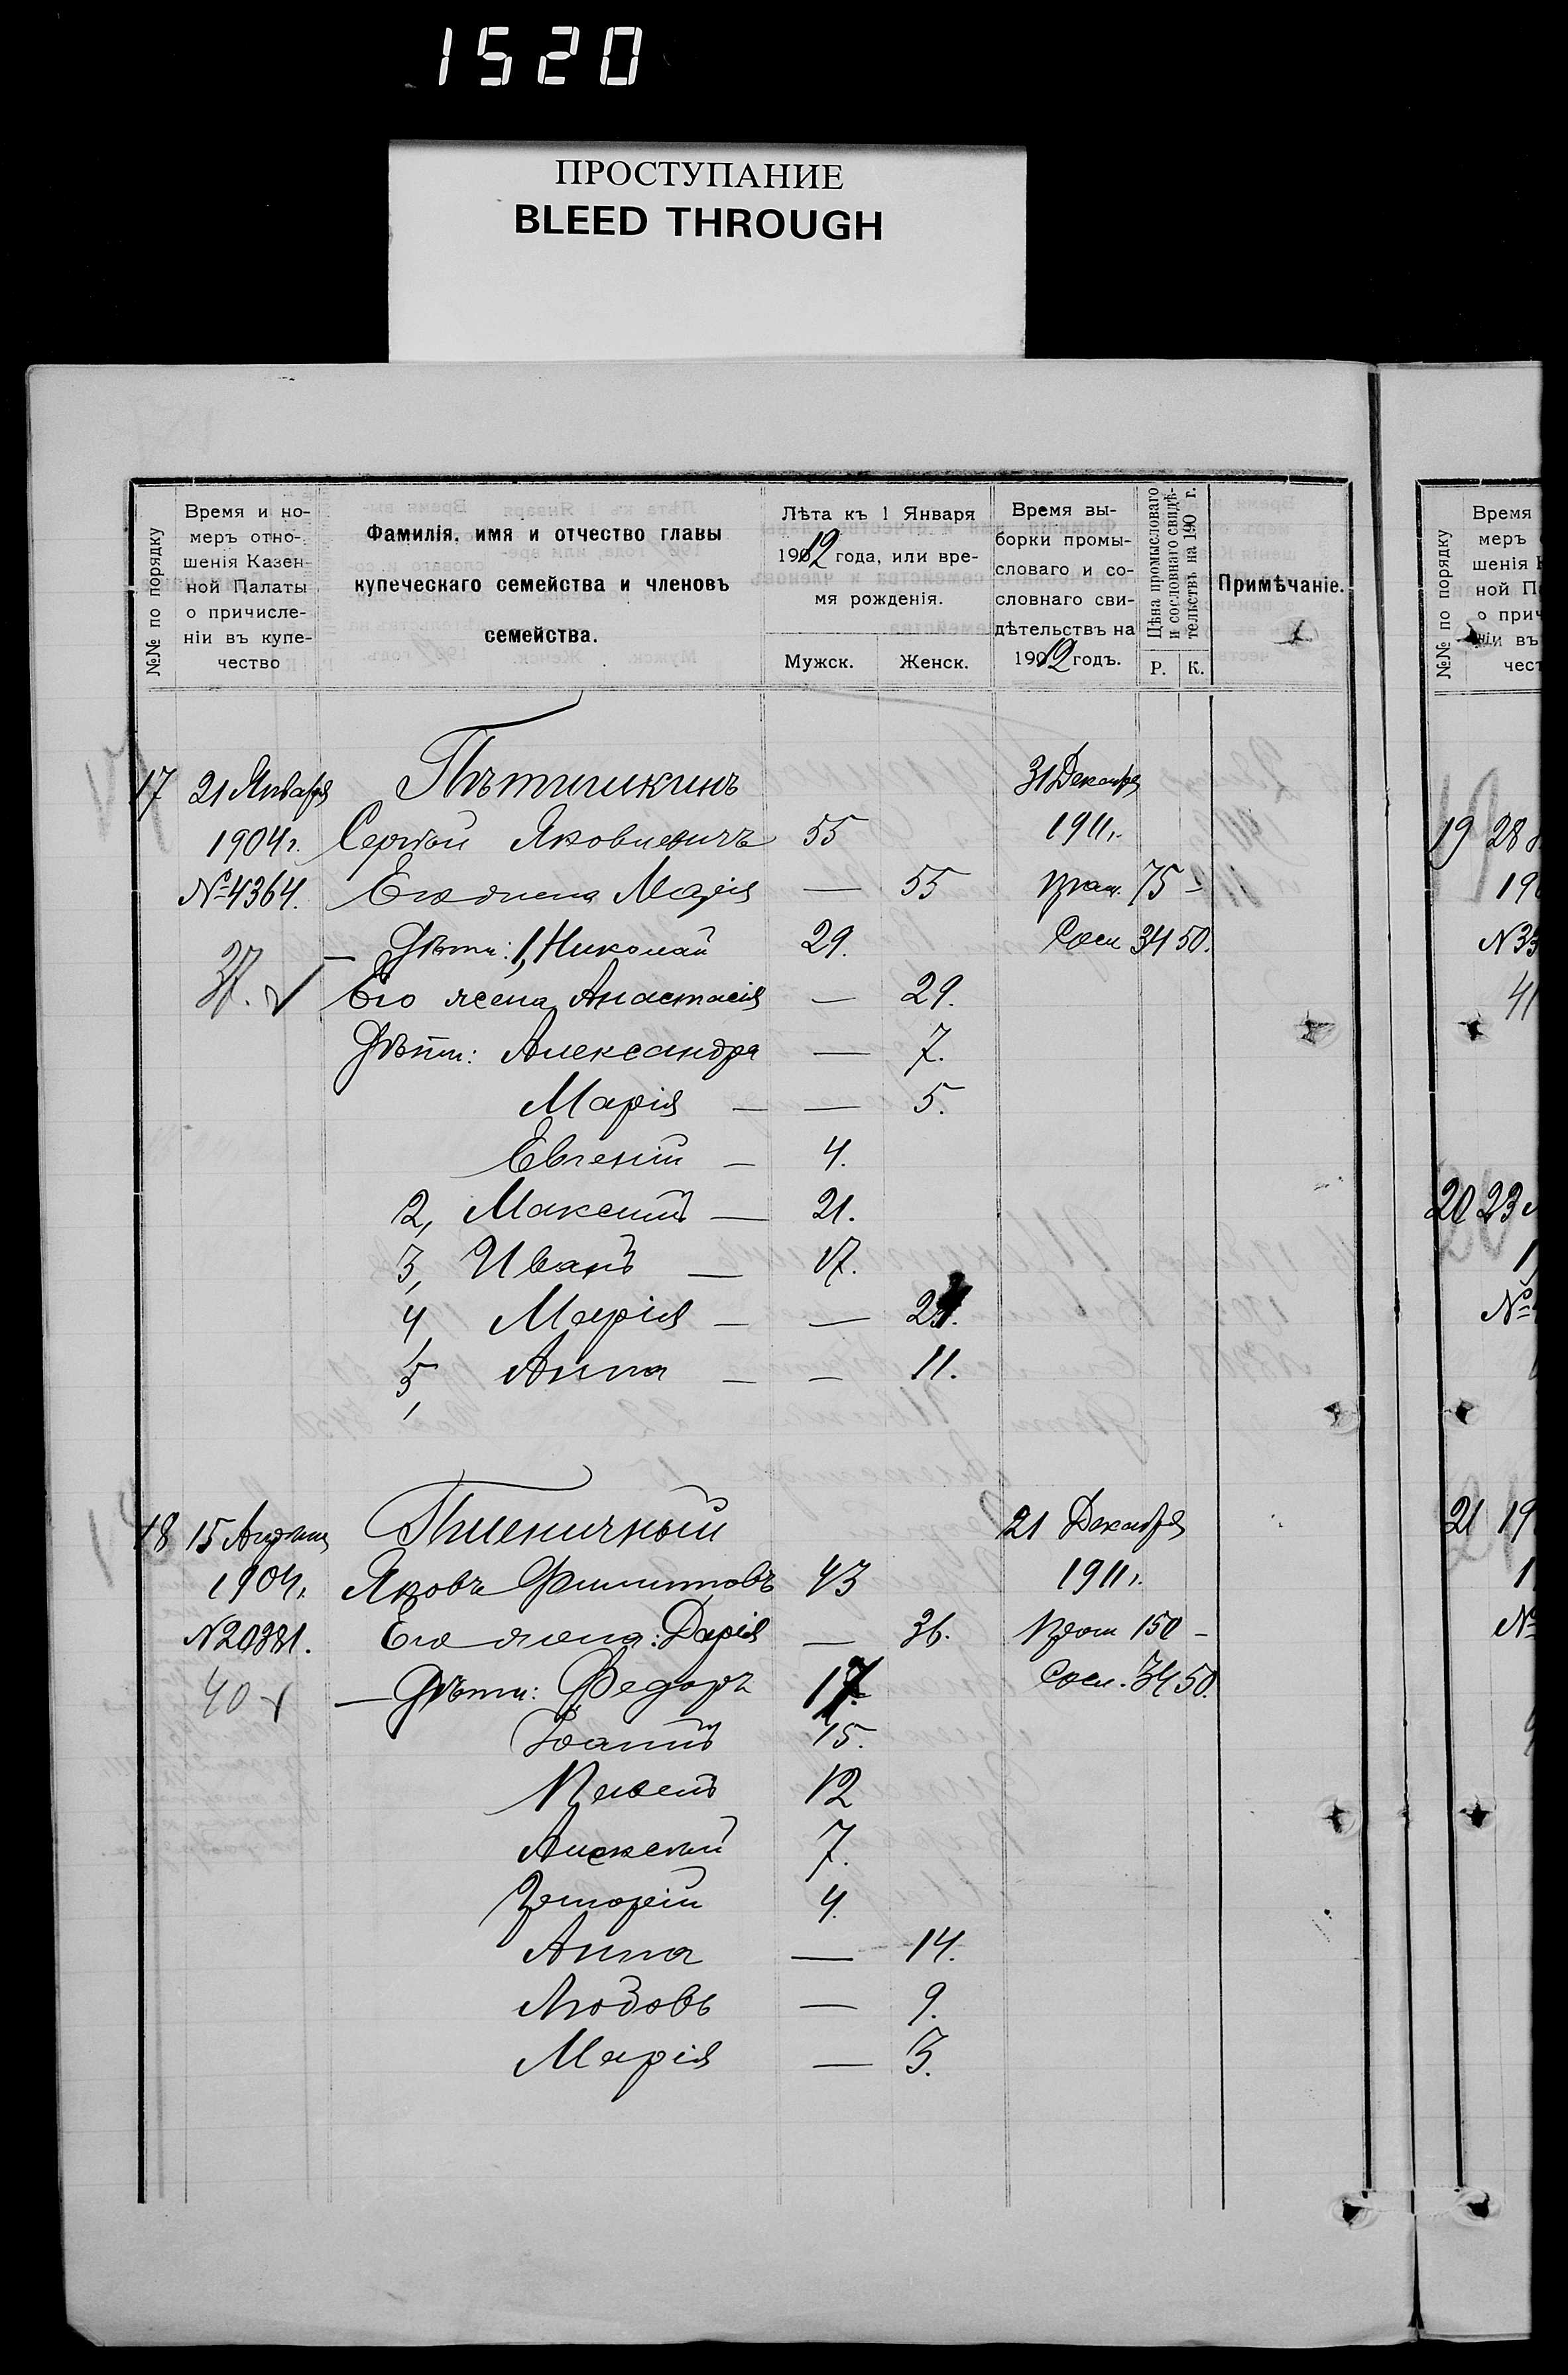 1520
ПРОСТУПАНИЕ
BLEED THROUGH
№№ по порядку
Время и но-
меръ отно-
шенія Казен-
ной Палаты
о причисле-
ніи въ купе-
чество
Фамилія, имя и отчество главы
купеческаго семейства и членовъ
семейства.
Лѣта къ 1 Января
1912 года, или вре-
мя рожденія.
Мужск. Женск.
Время вы-
борки промы-
словаго и со-
словнаго сви-
дѣтельствъ на
1912 годъ.
Цѣна промысловаго
и сословнаго свидѣ-
тельствъ на 190 г.
Р. К.
Примѣчаніе.
17 21 Января Пѣтишкинъ 31 Декабря
1904г. Сергѣй Яковлевичъ 55 1911г.
№4364. Его жена Марія — 55 пром. 75 -
— Дѣти: 1, Николай 29. Сосл 34 50.
37. Его жена Анастасія — 29.
Дѣти: Александра — 7.
Марія — — 5.
Евгеній — 4.
2, Максимъ — 21.
3, Иванъ — 17.
4, Марія — —
5, Анна — — 11.
18 15 Апрѣля Пшеничный 21 Декабря
1904г. Яковъ Филипповъ 43 1911г.
№20881. Его жена: Дарія — 36. Пром 150 -
40 — Дѣти: Федоръ 17. Сосл. 34 50.
Іоаннъ 15.
Павелъ 12
Алексѣй 7.
Григорій 4.
Анна — 14.
Любовь — 9.
Марія — 3.
№№ по порядку
Время
меръ
шенія
ной
о прич
ніи въ
чест
19 28
19
N33
41
20 23
1
№
21 19
1
№